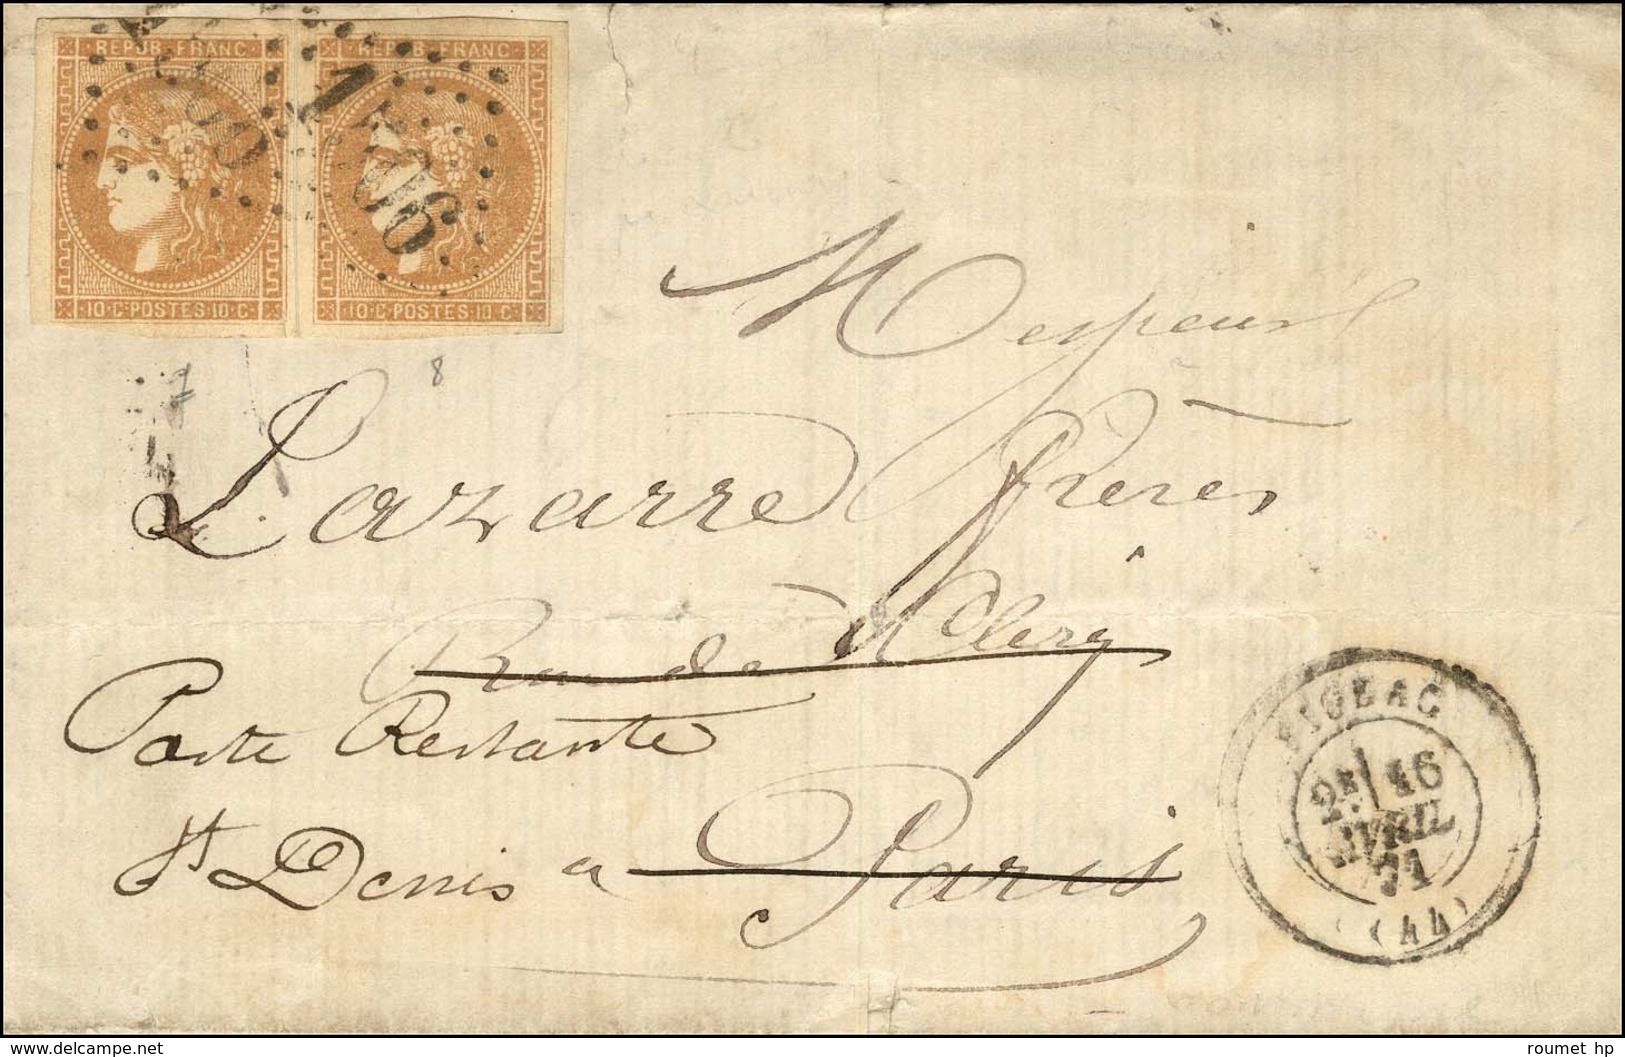 REPUB·FRANC·
REPUB·FRANC·
10·C·POSTES·10·C·
10·C·POSTES·10·C·
8
Messieurs
Lazarre frères
Rue de Cléry
Poste Restante
St Denis a Paris
FIGEAC
2E 16
AVRIL
71
(44)
roumet hp
www.delcampe.net